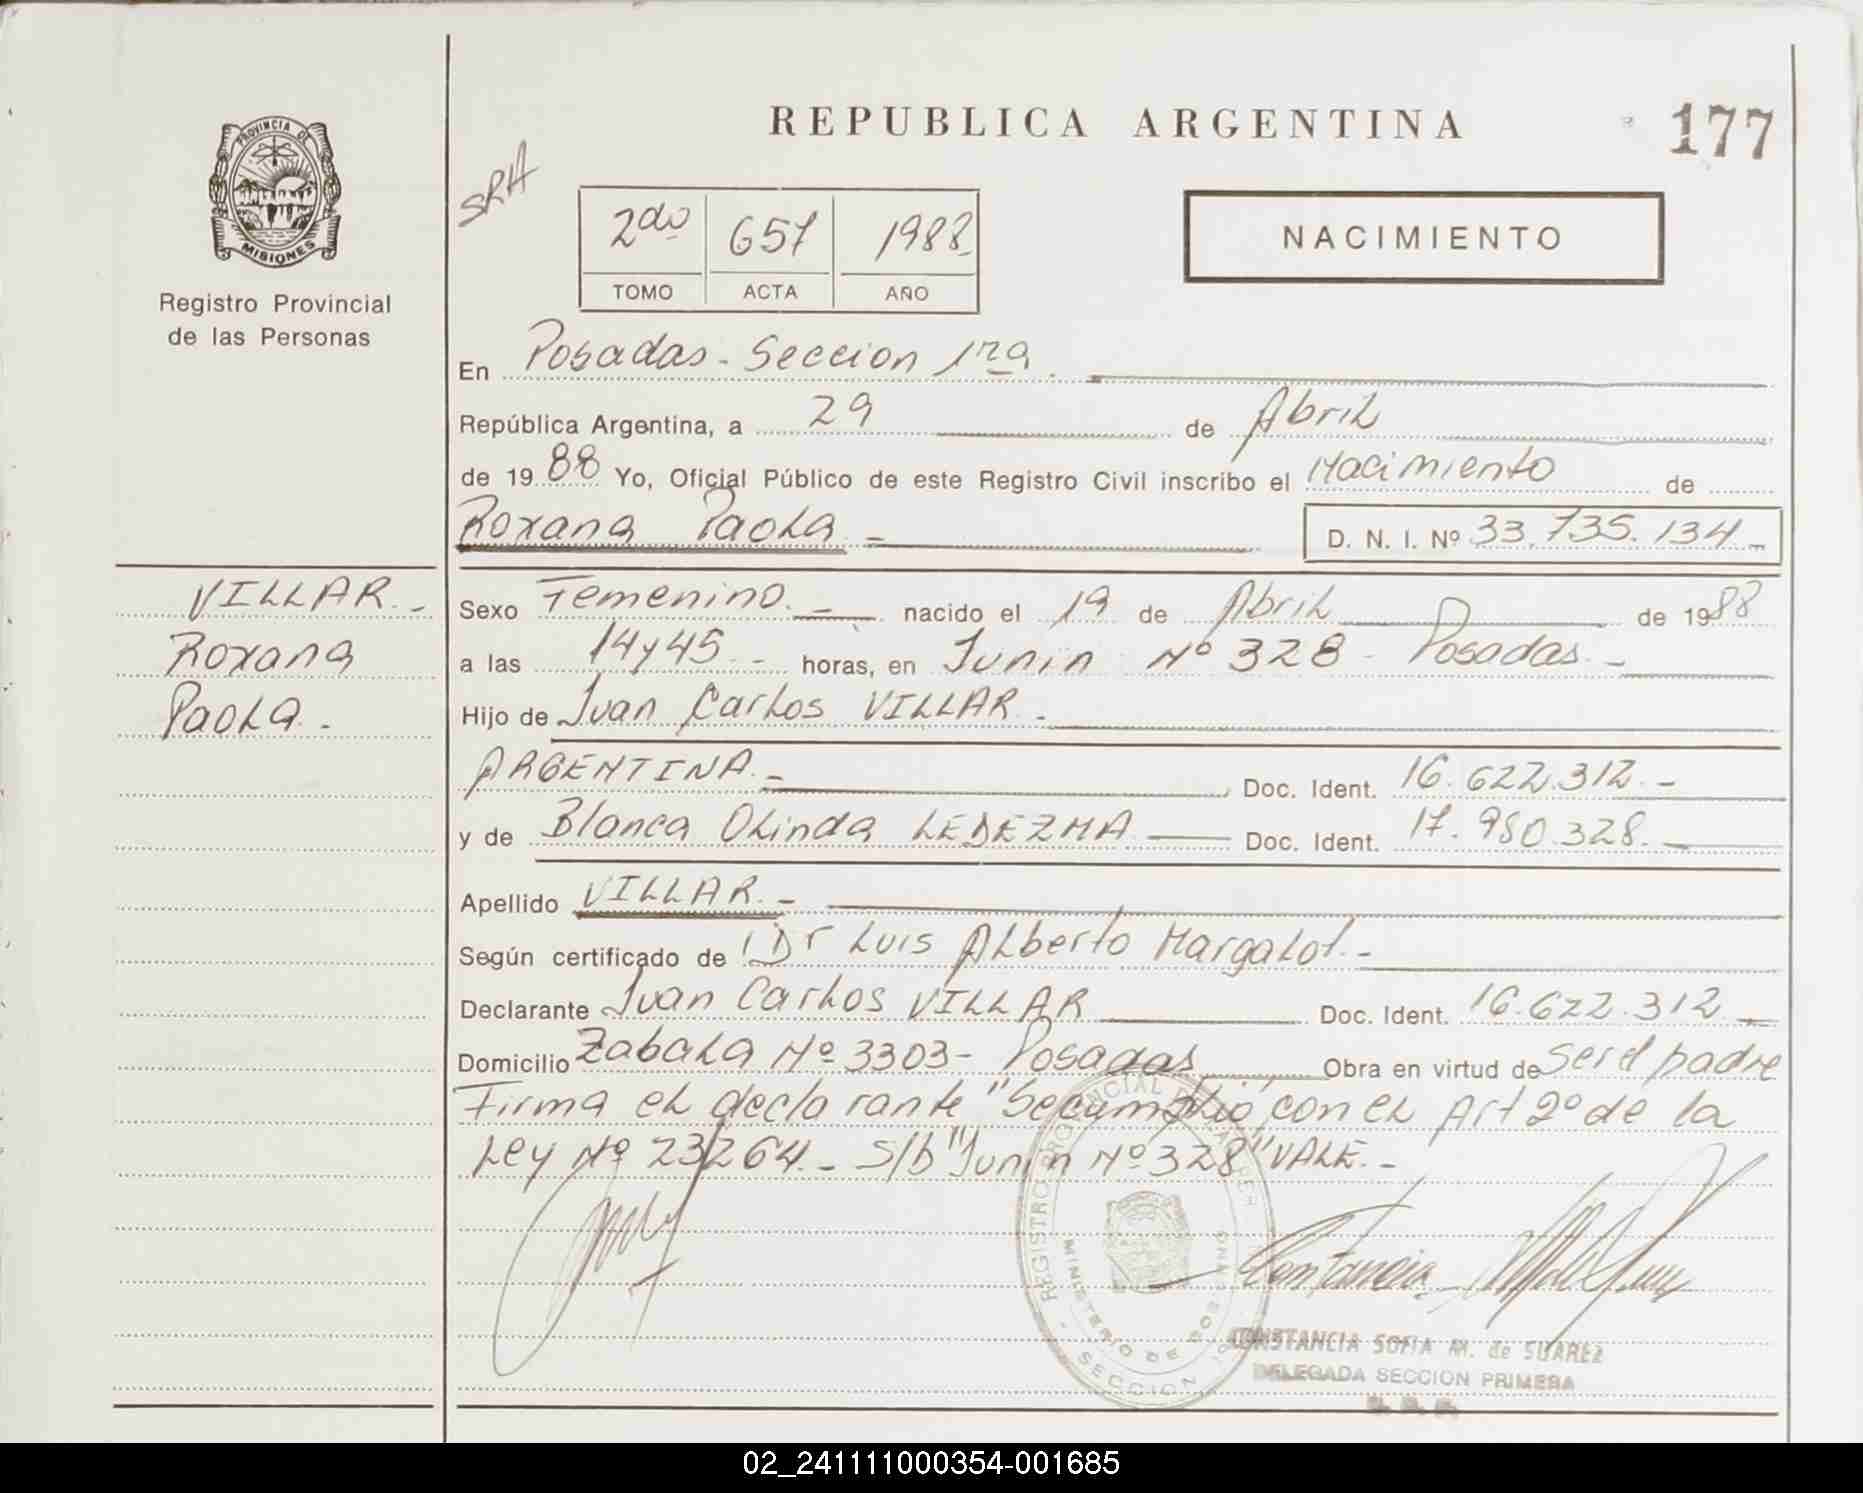 REPUBLICA ARGENTINA
177
SRA
PROVINCIA DE
MISIONES
Registro Provincial
de las Personas
2do 657 1988
TOMO ACTA AÑO
NACIMIENTO
En Posadas - Seccion 1ra.
República Argentina, a 29 de Abril
de 1988 Yo, Oficial Público de este Registro Civil inscribo el Nacimiento de
Roxana Paola - D. N. I. Nº 33.735.134 -
VILLAR. -
Roxana
Paola. -
Sexo Femenino. - nacido el 19 de Abril de 1988
a las 14 y 45 - horas, en Junin Nº 328 - Posadas. -
Hijo de Juan Carlos VILLAR. -
ARGENTINA. - Doc. Ident. 16.622.312. -
y de Blanca Olinda LEDEZMA Doc. Ident. 17.980.328. -
Apellido VILLAR. -
Según certificado de Dr Luis Alberto Margalot. -
Declarante Juan Carlos VILLAR Doc. Ident. 16.622.312 -
Domicilio Zabala Nº 3303 - Posadas Obra en virtud de ser el padre
Firma el declarante "Secumplio" con el Art 2º de la
Ley Nº 23264. - S/b "Junin Nº 328" VALE. -
REGISTRO PROVINCIAL DE
MINISTERIO DE GOBIERNO
SECCION
Constancia
CONSTANCIA SOFIA M. de SUAREZ
DELEGADA SECCION PRIMERA
02_241111000354-001685